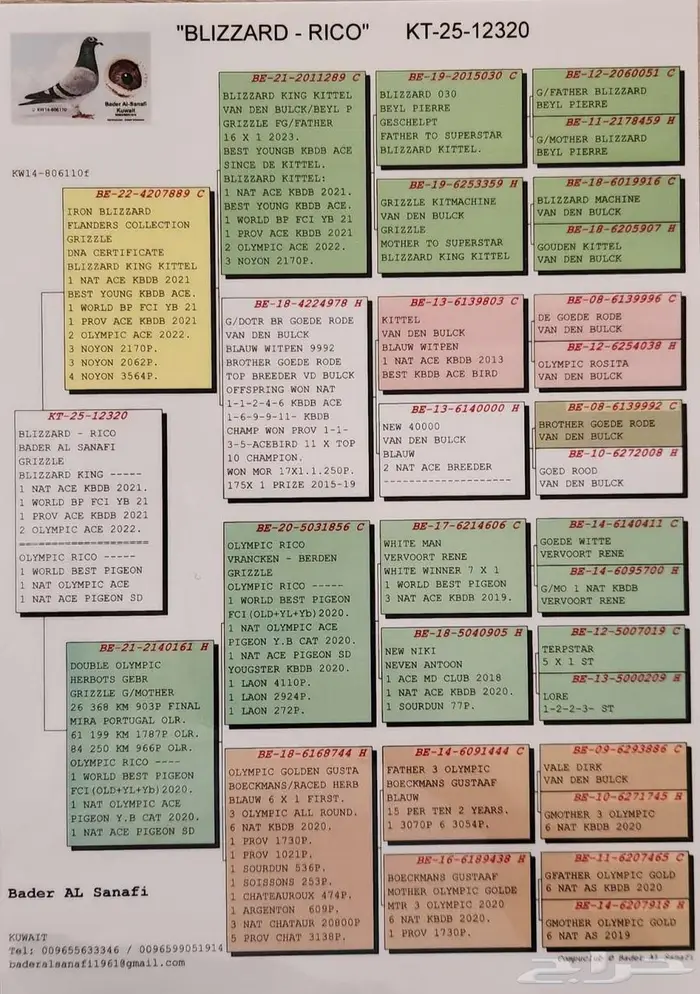 "BLIZZARD - RICO" KT-25-12320
© KW14-806110
Bader Al-Sanafi
Kuwait
KW14-806110f
KT-25-12320
BLIZZARD - RICO
BADER AL SANAFI
GRIZZLE
BLIZZARD KING -----
1 NAT ACE KBDB 2021.
1 WORLD BP FCI YB 21
1 PROV ACE KBDB 2021
2 OLYMPIC ACE 2022.
====================
OLYMPIC RICO -----
1 WORLD BEST PIGEON
1 NAT OLYMPIC ACE
1 NAT ACE PIGEON SD
BE-22-4207889 C
IRON BLIZZARD
FLANDERS COLLECTION
GRIZZLE
DNA CERTIFICATE
BLIZZARD KING KITTEL
1 NAT ACE KBDB 2021
BEST YOUNG KBDB ACE.
1 WORLD BP FCI YB 21
1 PROV ACE KBDB 2021
2 OLYMPIC ACE 2022.
3 NOYON 2170P.
3 NOYON 2062P.
4 NOYON 3564P.
BE-21-2140161 H
DOUBLE OLYMPIC
HERBOTS GEBR
GRIZZLE G/MOTHER
26 368 KM 903P FINAL
MIRA PORTUGAL OLR.
61 199 KM 1787P OLR.
84 250 KM 966P OLR.
OLYMPIC RICO ----
1 WORLD BEST PIGEON
FCI(OLD+YL+Yb)2020.
1 NAT OLYMPIC ACE
PIGEON Y.B CAT 2020.
1 NAT ACE PIGEON SD
BE-21-2011289 C
BLIZZARD KING KITTEL
VAN DEN BULCK/BEYL P
GRIZZLE FG/FATHER
16 X 1 2023.
BEST YOUNGB KBDB ACE
SINCE DE KITTEL.
BLIZZARD KITTEL:
1 NAT ACE KBDB 2021.
BEST YOUNG KBDB ACE.
1 WORLD BP FCI YB 21
1 PROV ACE KBDB 2021
2 OLYMPIC ACE 2022.
3 NOYON 2170P.
BE-18-4224978 H
G/DOTR BR GOEDE RODE
VAN DEN BULCK
BLAUW WITPEN 9992
BROTHER GOEDE RODE
TOP BREEDER VD BULCK
OFFSPRING WON NAT
1-1-2-4-6 KBDB ACE
1-6-9-9-11- KBDB
CHAMP WON PROV 1-1-
3-5-ACEBIRD 11 X TOP
10 CHAMPION.
WON MOR 17X1.1.250P.
175X 1 PRIZE 2015-19
BE-20-5031856 C
OLYMPIC RICO
VRANCKEN - BERDEN
GRIZZLE
OLYMPIC RICO -----
1 WORLD BEST PIGEON
FCI(OLD+YL+Yb)2020.
1 NAT OLYMPIC ACE
PIGEON Y.B CAT 2020.
1 NAT ACE PIGEON SD
YOUGSTER KBDB 2020.
1 LAON 4110P.
1 LAON 2924P.
1 LAON 272P.
BE-18-6168744 H
OLYMPIC GOLDEN GUSTA
BOECKMANS/RACED HERB
BLAUW 6 X 1 FIRST.
3 OLYMPIC ALL ROUND.
6 NAT KBDB 2020.
1 PROV 1730P.
1 PROV 1021P.
1 SOURDUN 536P.
1 SOISSONS 253P.
1 CHATEAUROUX 474P.
1 ARGENTON 609P.
3 NAT CHATAUR 20800P
5 PROV CHAT 3138P.
BE-19-2015030 C
BLIZZARD 030
BEYL PIERRE
GESCHELPT
FATHER TO SUPERSTAR
BLIZZARD KITTEL.
BE-19-6253359 H
GRIZZLE KITMACHINE
VAN DEN BULCK
GRIZZLE
MOTHER TO SUPERSTAR
BLIZZARD KING KITTEL
BE-13-6139803 C
KITTEL
VAN DEN BULCK
BLAUW WITPEN
1 NAT ACE KBDB 2013
BEST KBDB ACE BIRD
BE-13-6140000 H
NEW 40000
VAN DEN BULCK
BLAUW
2 NAT ACE BREEDER
--------------------
BE-17-6214606 C
WHITE MAN
VERVOORT RENE
WHITE WINNER 7 X 1
1 WORLD BEST PIGEON
3 NAT ACE KBDB 2019.
BE-18-5040905 H
NEW NIKI
NEVEN ANTOON
1 ACE MD CLUB 2018
1 NAT ACE KBDB 2020.
1 SOURDUN 77P.
BE-14-6091444 C
FATHER 3 OLYMPIC
BOECKMANS GUSTAAF
BLAUW
15 PER TEN 2 YEARS.
1 3070P 6 3054P.
BE-16-6189438 H
BOECKMANS GUSTAAF
MOTHER OLYMPIC GOLDE
MTR 3 OLYMPIC 2020
6 NAT KBDB 2020.
1 PROV 1730P.
BE-12-2060051 C
G/FATHER BLIZZARD
BEYL PIERRE
BE-11-2178459 H
G/MOTHER BLIZZARD
BEYL PIERRE
BE-18-6019916 C
BLIZZARD MACHINE
VAN DEN BULCK
BE-18-6205907 H
GOUDEN KITTEL
VAN DEN BULCK
BE-08-6139996 C
DE GOEDE RODE
VAN DEN BULCK
BE-12-6254038 H
OLYMPIC ROSITA
VAN DEN BULCK
BE-08-6139992 C
BROTHER GOEDE RODE
VAN DEN BULCK
BE-10-6272008 H
GOED ROOD
VAN DEN BULCK
BE-14-6140411 C
GOEDE WITTE
VERVOORT RENE
BE-14-6095700 H
G/MO 1 NAT KBDB
VERVOORT RENE
BE-12-5007019 C
TERPSTAR
5 X 1 ST
BE-13-5000209 H
LORE
1-2-2-3- ST
BE-09-6293886 C
VALE DIRK
VAN DEN BULCK
BE-10-6271745 H
GMOTHER 3 OLYMPIC
6 NAT KBDB 2020
BE-11-6207465 C
GFATHER OLYMPIC GOLD
6 NAT AS KBDB 2020
BE-14-6207918 H
GMOTHER OLYMPIC GOLD
6 NAT AS 2019
Bader AL Sanafi
KUWAIT
Tel: 009655633346 / 0096599051914
baderalsanafi1961@gmail.com
Compuclub © Bader AL Sanafi
حراج